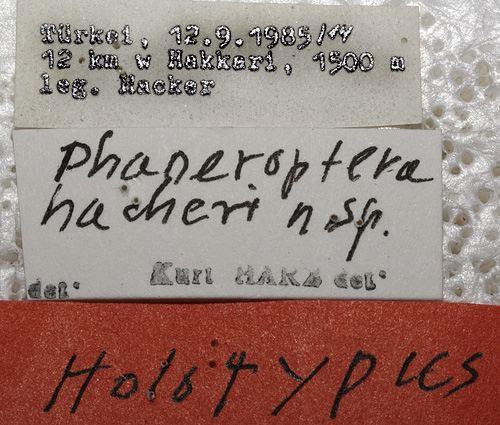 Türkei, 12.9.1985/11
12 km w Hakkari, 1500 m
leg. Hacker
Phaneroptera
hackeri n sp.
det. Kurt HARZ det.
Holotypus